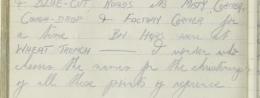 & BLUE-CUT ROADS AS MISTY CORNER,
COUGH-DROP & FACTORY CORNER for
a time. BN HQRS were at
WHEAT TRENCH —— I wonder who
chooses the names for the christening
of all these points of reference